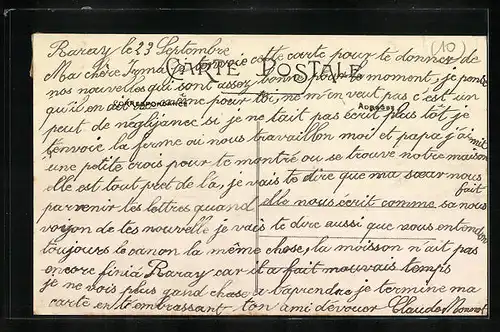 (10)
Raray le 23 Septembre
Ma chère Irma je t'envoie cette carte pour te donner de
CARTE POSTALE
nos nouvelles qui sont assez bonne pour le moment, je pense
qu'il en est de même pour toi, ne m'en veut pas c'est un
CORRESPONDANCE
ADRESSE
peut de négligance si je ne t'ait pas écrit plus tôt, je
t'envoie la ferme ou nous travaillon moi et papa j'ai mit
une petite crois pour te montré ou se trouve notre maison
elle est tout pret de là, je vais te dire que ma sœur nous fait
parvenir tes lettres quand elle nous écrit comme sa nous
voyon de tes nouvelle je vais te dire aussi que nous entendon
toujours le canon la même chose, la moisson n'ait pas
encore finia Raray car il a fait mauvais temps
je ne vois plus gand chose a taprendre je termine ma
carte en t'embrassant ton ami dévouer Claude